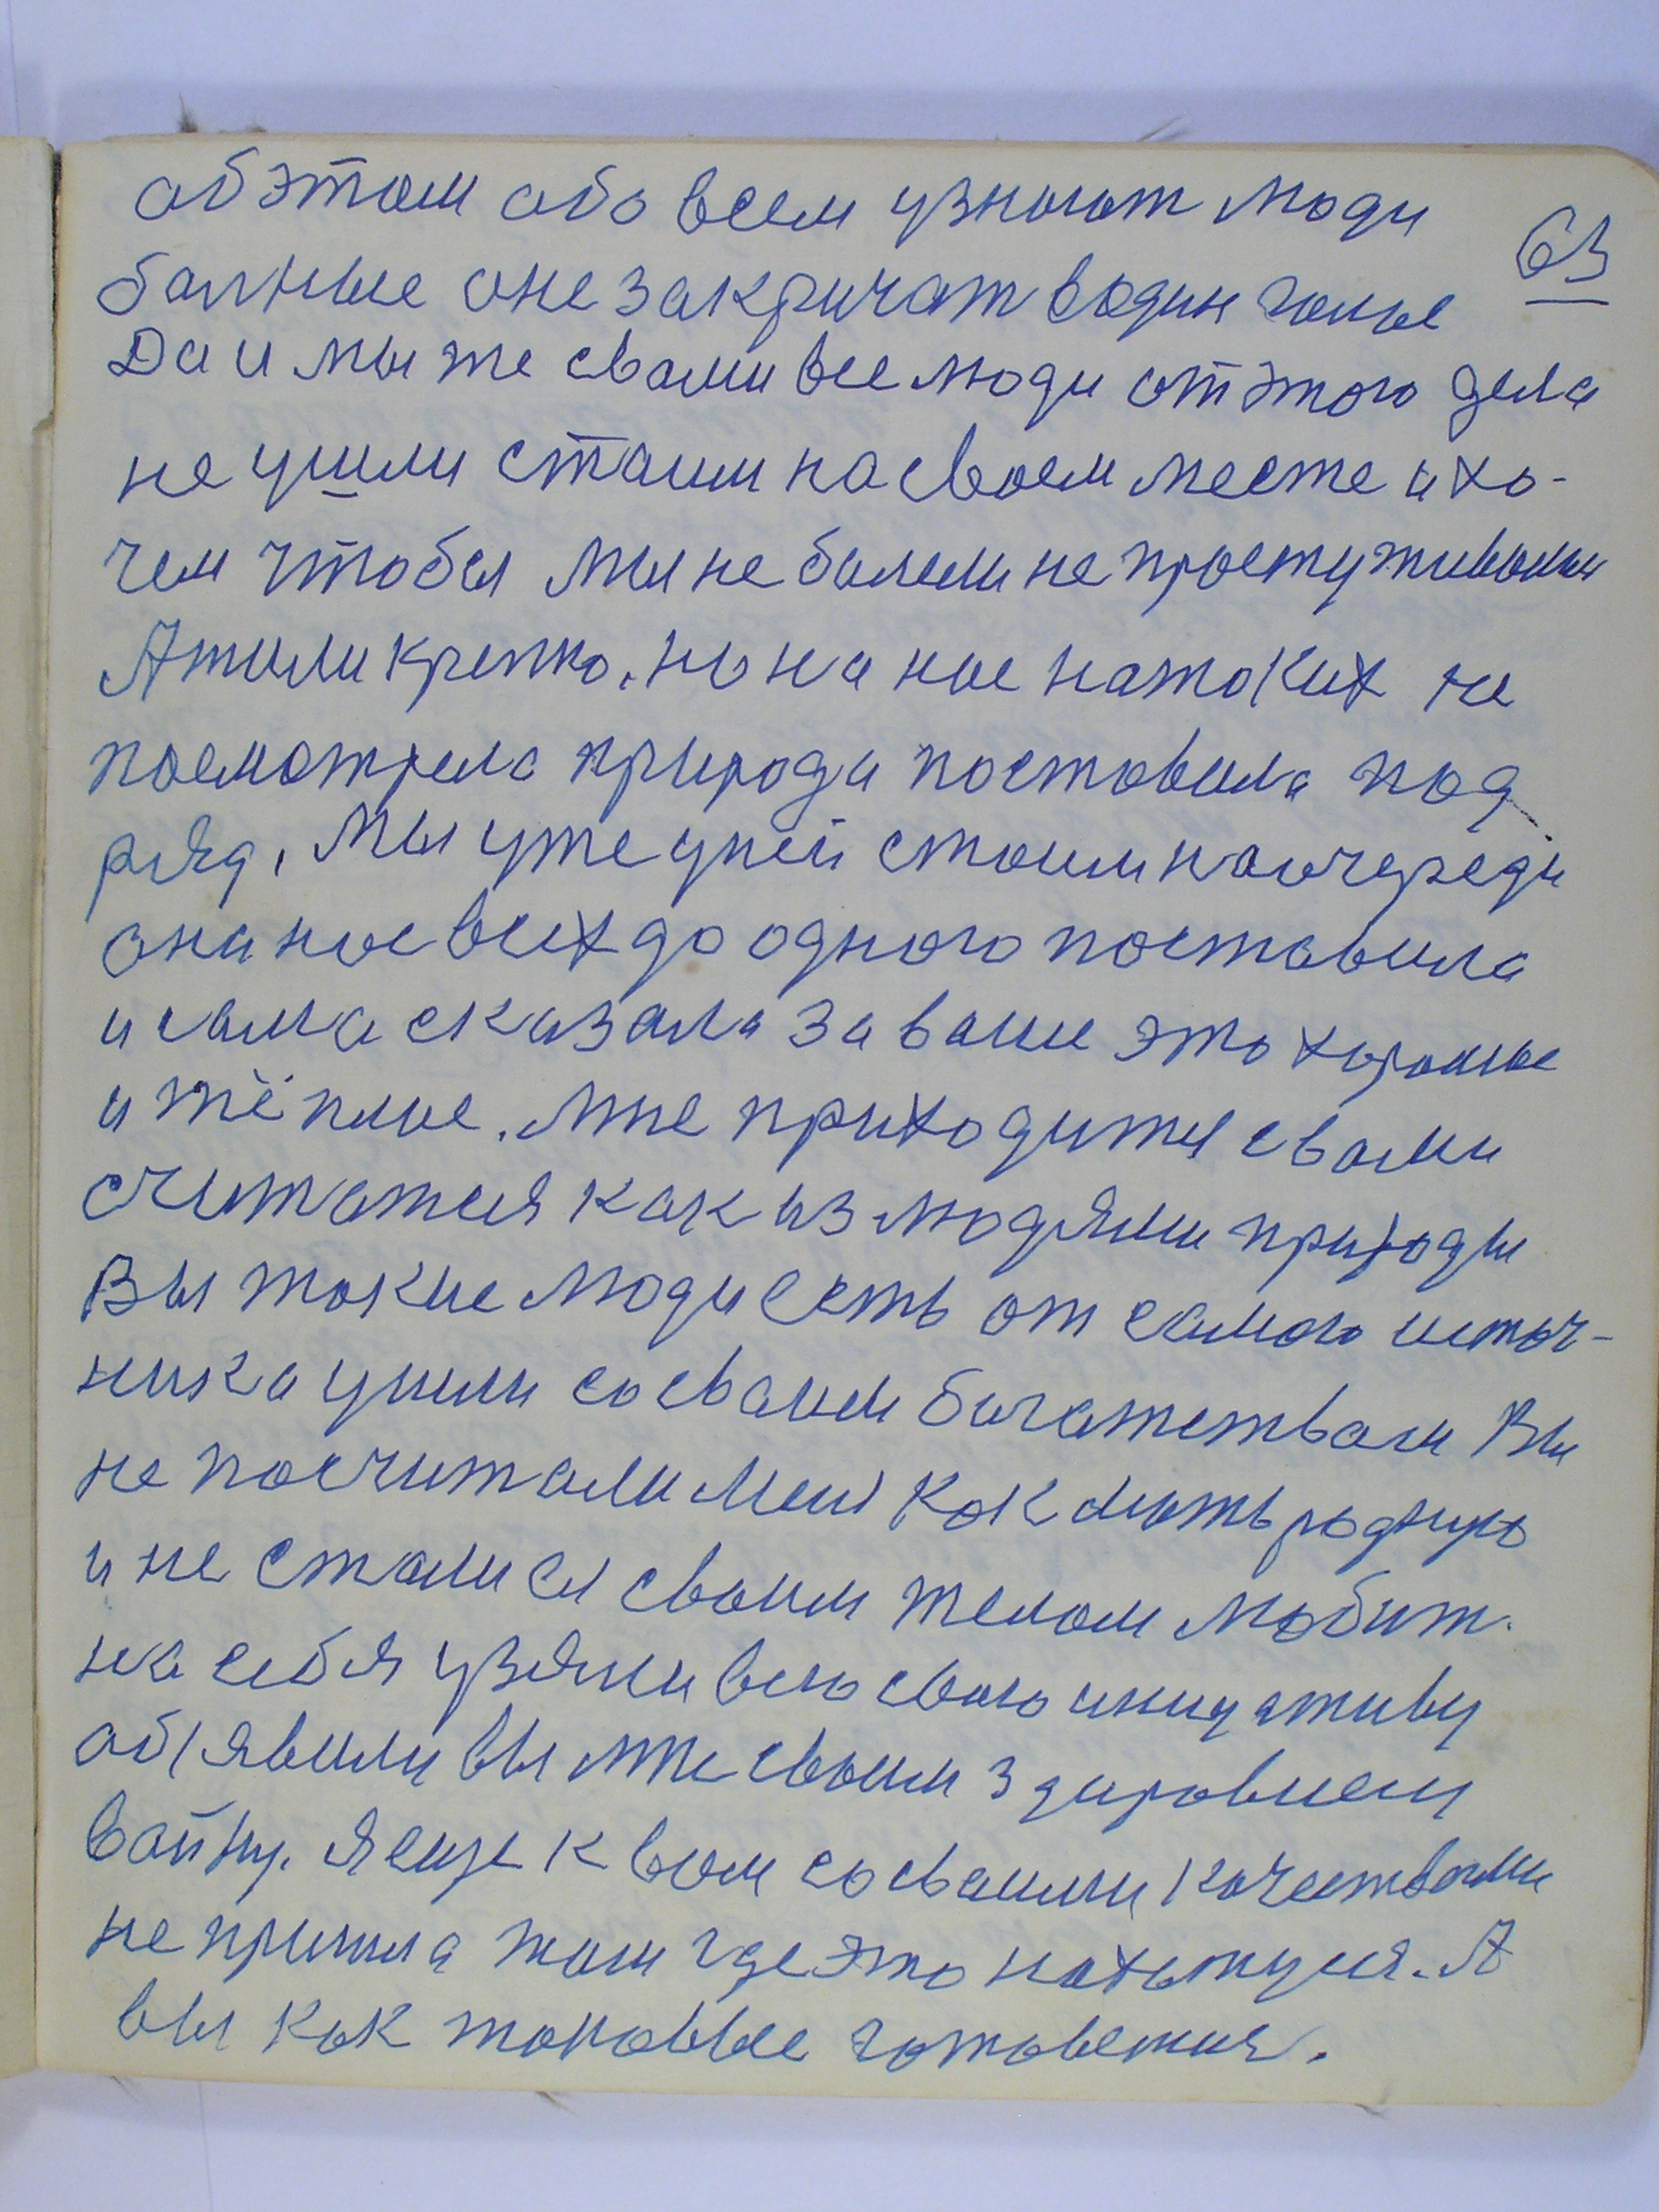 обэтом обо всем узнают люди
63
балные оне закричат водин голос
Да и мы же свами все люди от этого дела
не ушли стоим на своем месте и хо-
чем чтобы мы не болели не простуживалис
А жили крепко. но на нас на таких не
посмотрела природа поставила под
ряд, мы уже у ней стоим на очереди
она нас всех до одного поставила
и сама сказала за ваше это хорошее
и тёплое. мне приходится с вами
считатся как из людями природы
Вы такие люди есть от самого источ-
ника ушли со своим богатством Вы
не посчитали меня как мать родную
и не стали ея своим телом любит.
на себя узяли всю свою инициативу
обявили вы мне своим здоровием
войну. я еще к вам со своими качествами
не пришла там где это находится. А
вы как таковые готовтися.